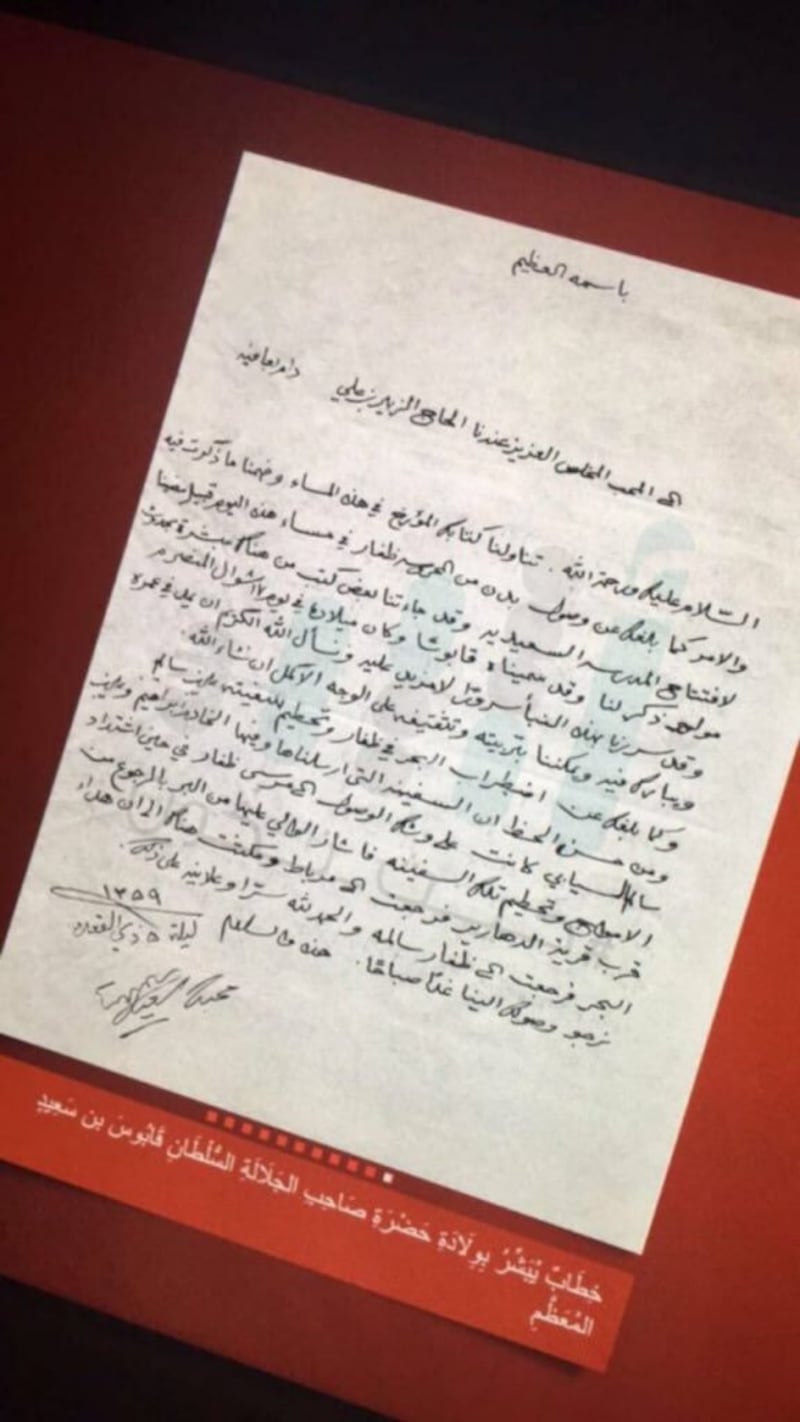 باسمه العظيم
الى المحب المخلص العزيز عندنا الحاج الزبير بن علي دام بعافيه
السلام عليكم ورحمة الله. تناولنا كتابكم المؤرخ في هذا المساء وفهمنا ما ذكرت فيه
والامر كما بلغكم عن وصول من ظفار في مساء هذا اليوم قبيل
لافتتاح المدرسه السعيديه وقد جاءتنا بعض كتب من هناك مبشرة بحدوث
مولود ذكر لنا وقد سميناه قابوسًا وكان ميلاده في يوم ١٧ شوال المنصرم
وقد سررنا بهذا النبأ سرورًا لا مزيد عليه ونسأل الله الكريم ان يمد في عمره
ويبارك فيه ويمكننا بتربيته وتثقيفه على الوجه الاكمل ان شاء الله.
وكما بلغكم عن اضطراب البحر في ظفار وتحطيم السفينه
ومن حسن الحظ ان السفينه التي ارسلناها وفيها ابراهيم
سالم السيابي كانت على وشك الوصول الى مرسى ظفار في حين اشتداد
الامواج وتحطيم تلك السفينه فأشار الوالي عليها من البر بالرجوع من
قرب قرية الدهاريز فرجعت الى مرباط ومكثت هناك الى ان هدأ
البحر فرجعت الى ظفار سالمه والحمد لله سرًا وعلانيه على ذلك.
نرجو وصولك الينا غدًا صباحًا. هذا والسلام ليلة ٥ ذي القعده
١٣٥٩
خِطَابٌ يُبَشِّرُ بِوِلَادَةِ حَضْرَةِ صَاحِبِ الجَلَالَةِ السُّلْطَانِ قَابُوسَ بن سَعِيدٍ
المُعَظَّمِ